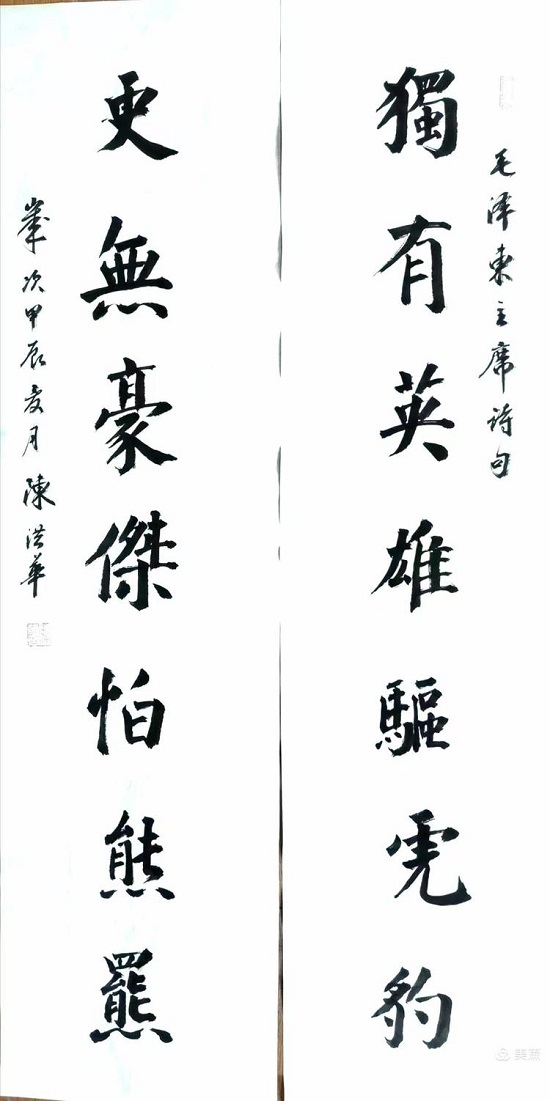 毛泽东主席诗句
獨有英雄驅虎豹
更無豪傑怕熊羆
歲次甲辰夏月陳洪華
美篇